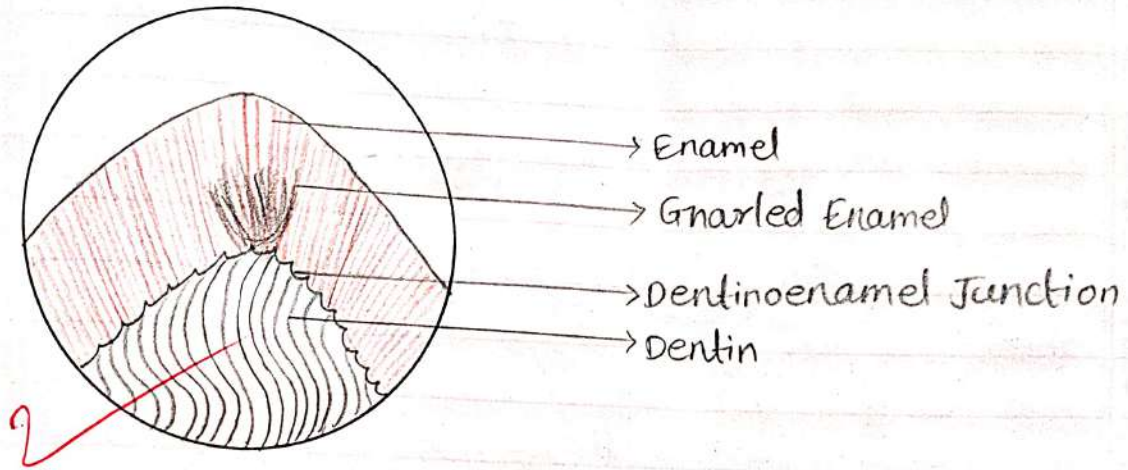 Enamel
Gnarled Enamel
Dentinoenamel Junction
Dentin